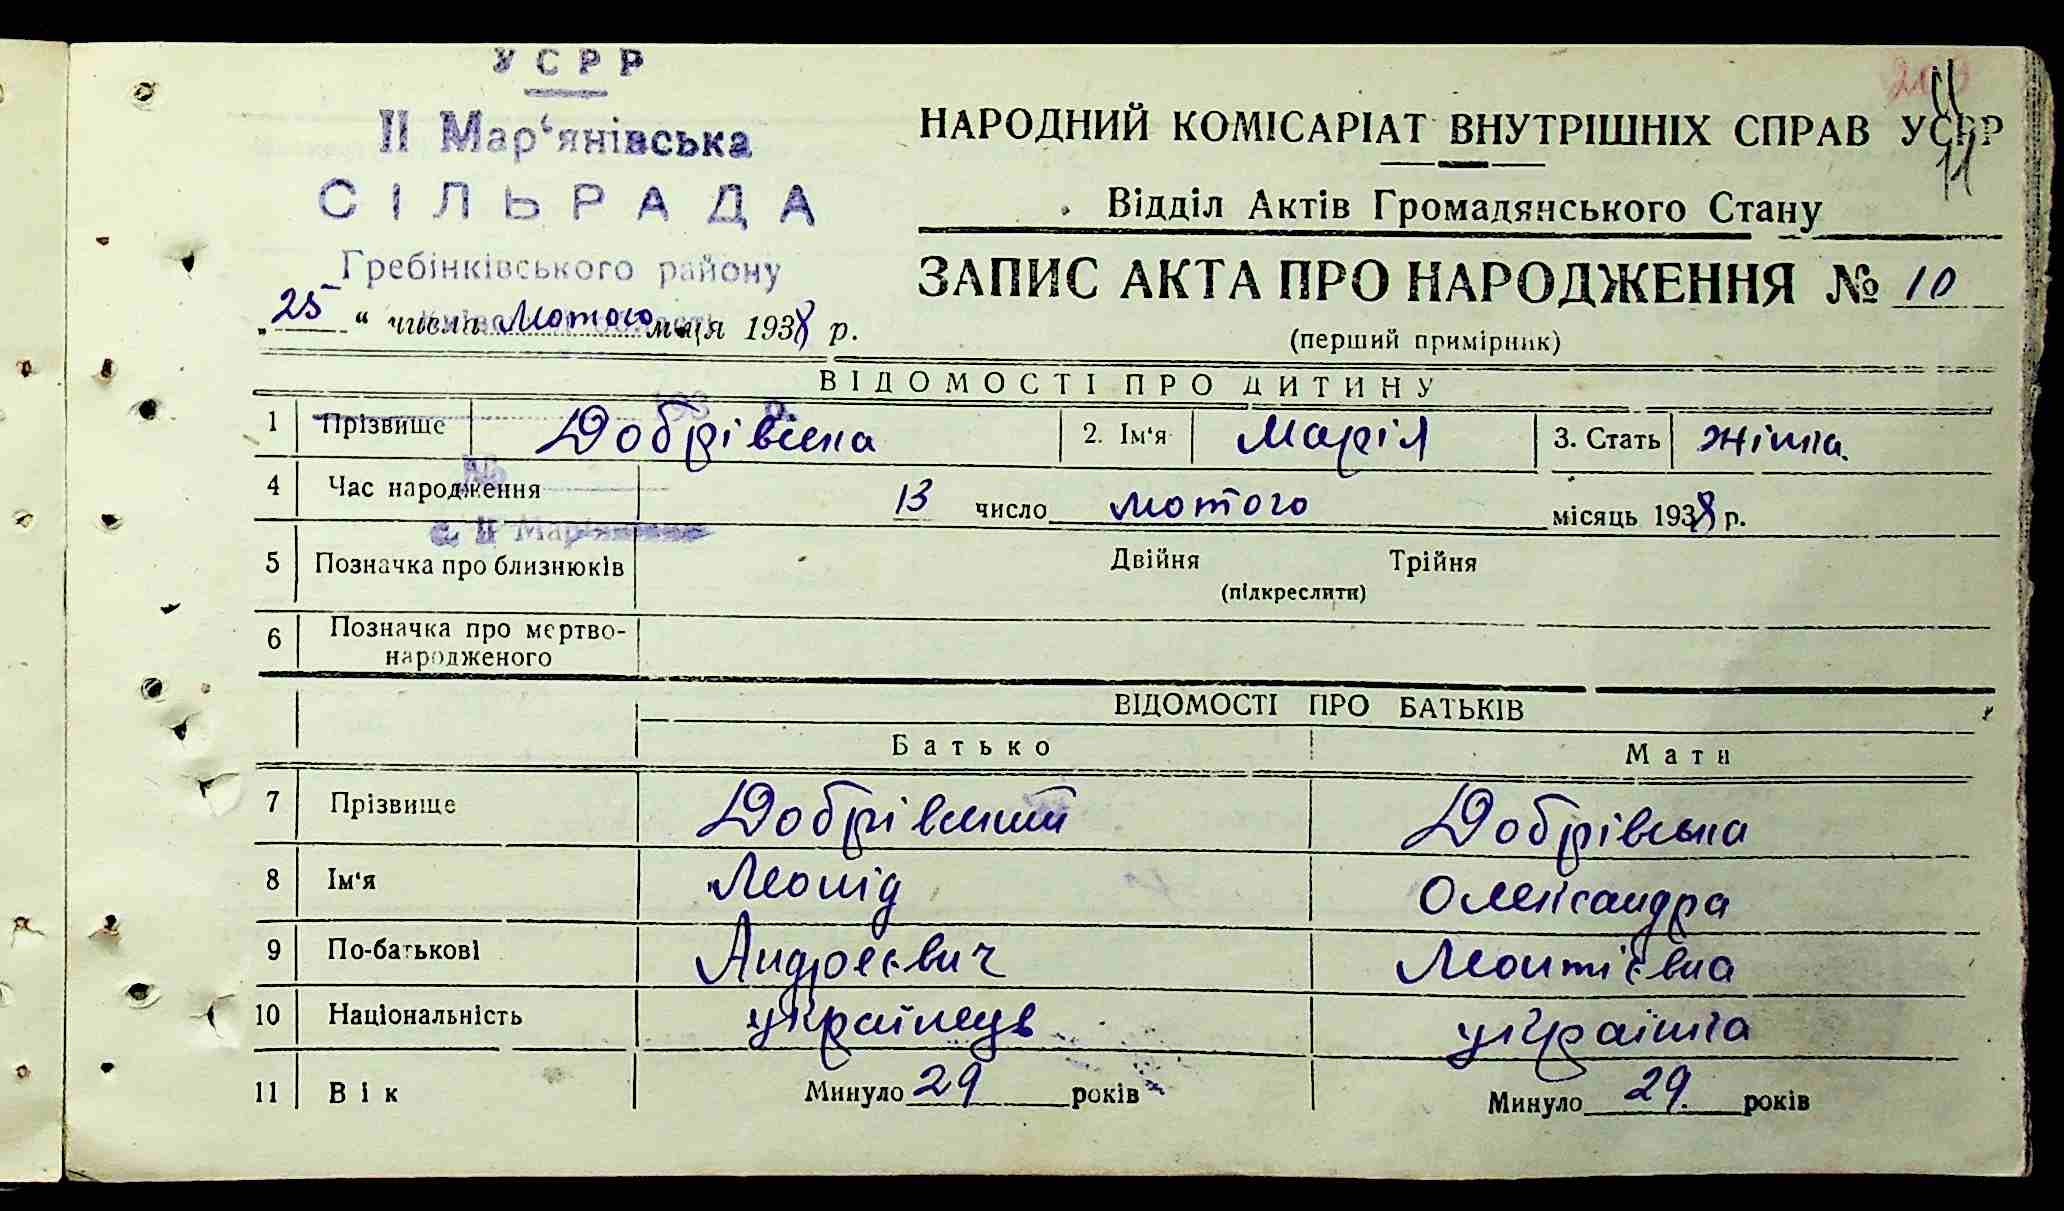 УСРР
ІІ Мар‘янівська
СІЛЬРАДА
Гребінківського району
„25“ числа Лютого м-ця 1938 р.
НАРОДНИЙ КОМІСАРІАТ ВНУТРІШНІХ СПРАВ УСРР
Відділ Актів Громадянського Стану
ЗАПИС АКТА ПРО НАРОДЖЕННЯ № 10
(перший примірник)
ВІДОМОСТІ ПРО ДИТИНУ
1 Прізвище Добрівська 2. Ім‘я Марія 3. Стать жінка
4 Час народження 13 число лютого місяць 1938 р.
с. ІІ Мар‘янівка
5 Позначка про близнюків Двійня Трійня
(підкреслити)
6 Позначка про мертво-
народженого
ВІДОМОСТІ ПРО БАТЬКІВ
Батько Мати
7 Прізвище Добрівський Добрівська
8 Ім‘я Леонід Олександра
9 По-батькові Андреєвич Леонтієвна
10 Національність українець українка
11 Вік Минуло 29 років Минуло 29 років